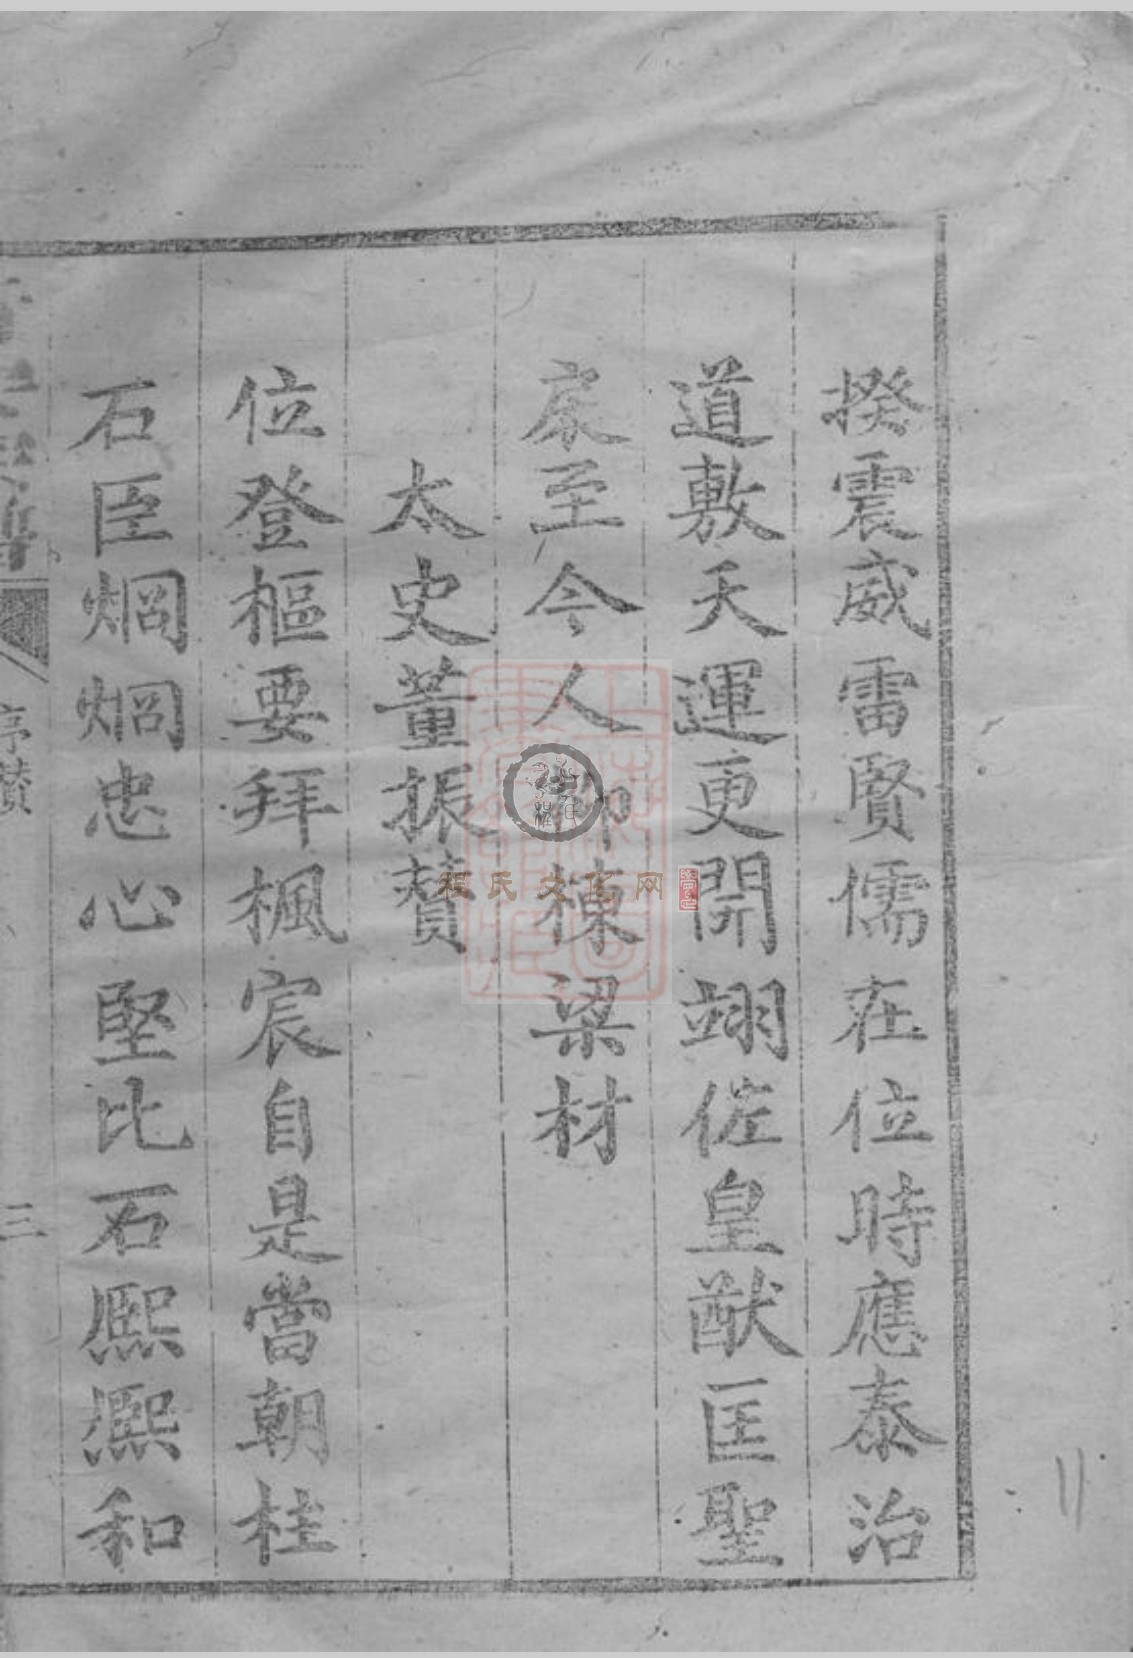 揆震威雷賢儒在位時應泰治
道敷天運更開翊佐皇猷匡聖
宸至今人仰棟梁材
太史董振贊
位登樞要拜楓宸自是當朝柱
石臣烱烱忠心堅比石熙熙和
亭贊
三
程氏文化网
11